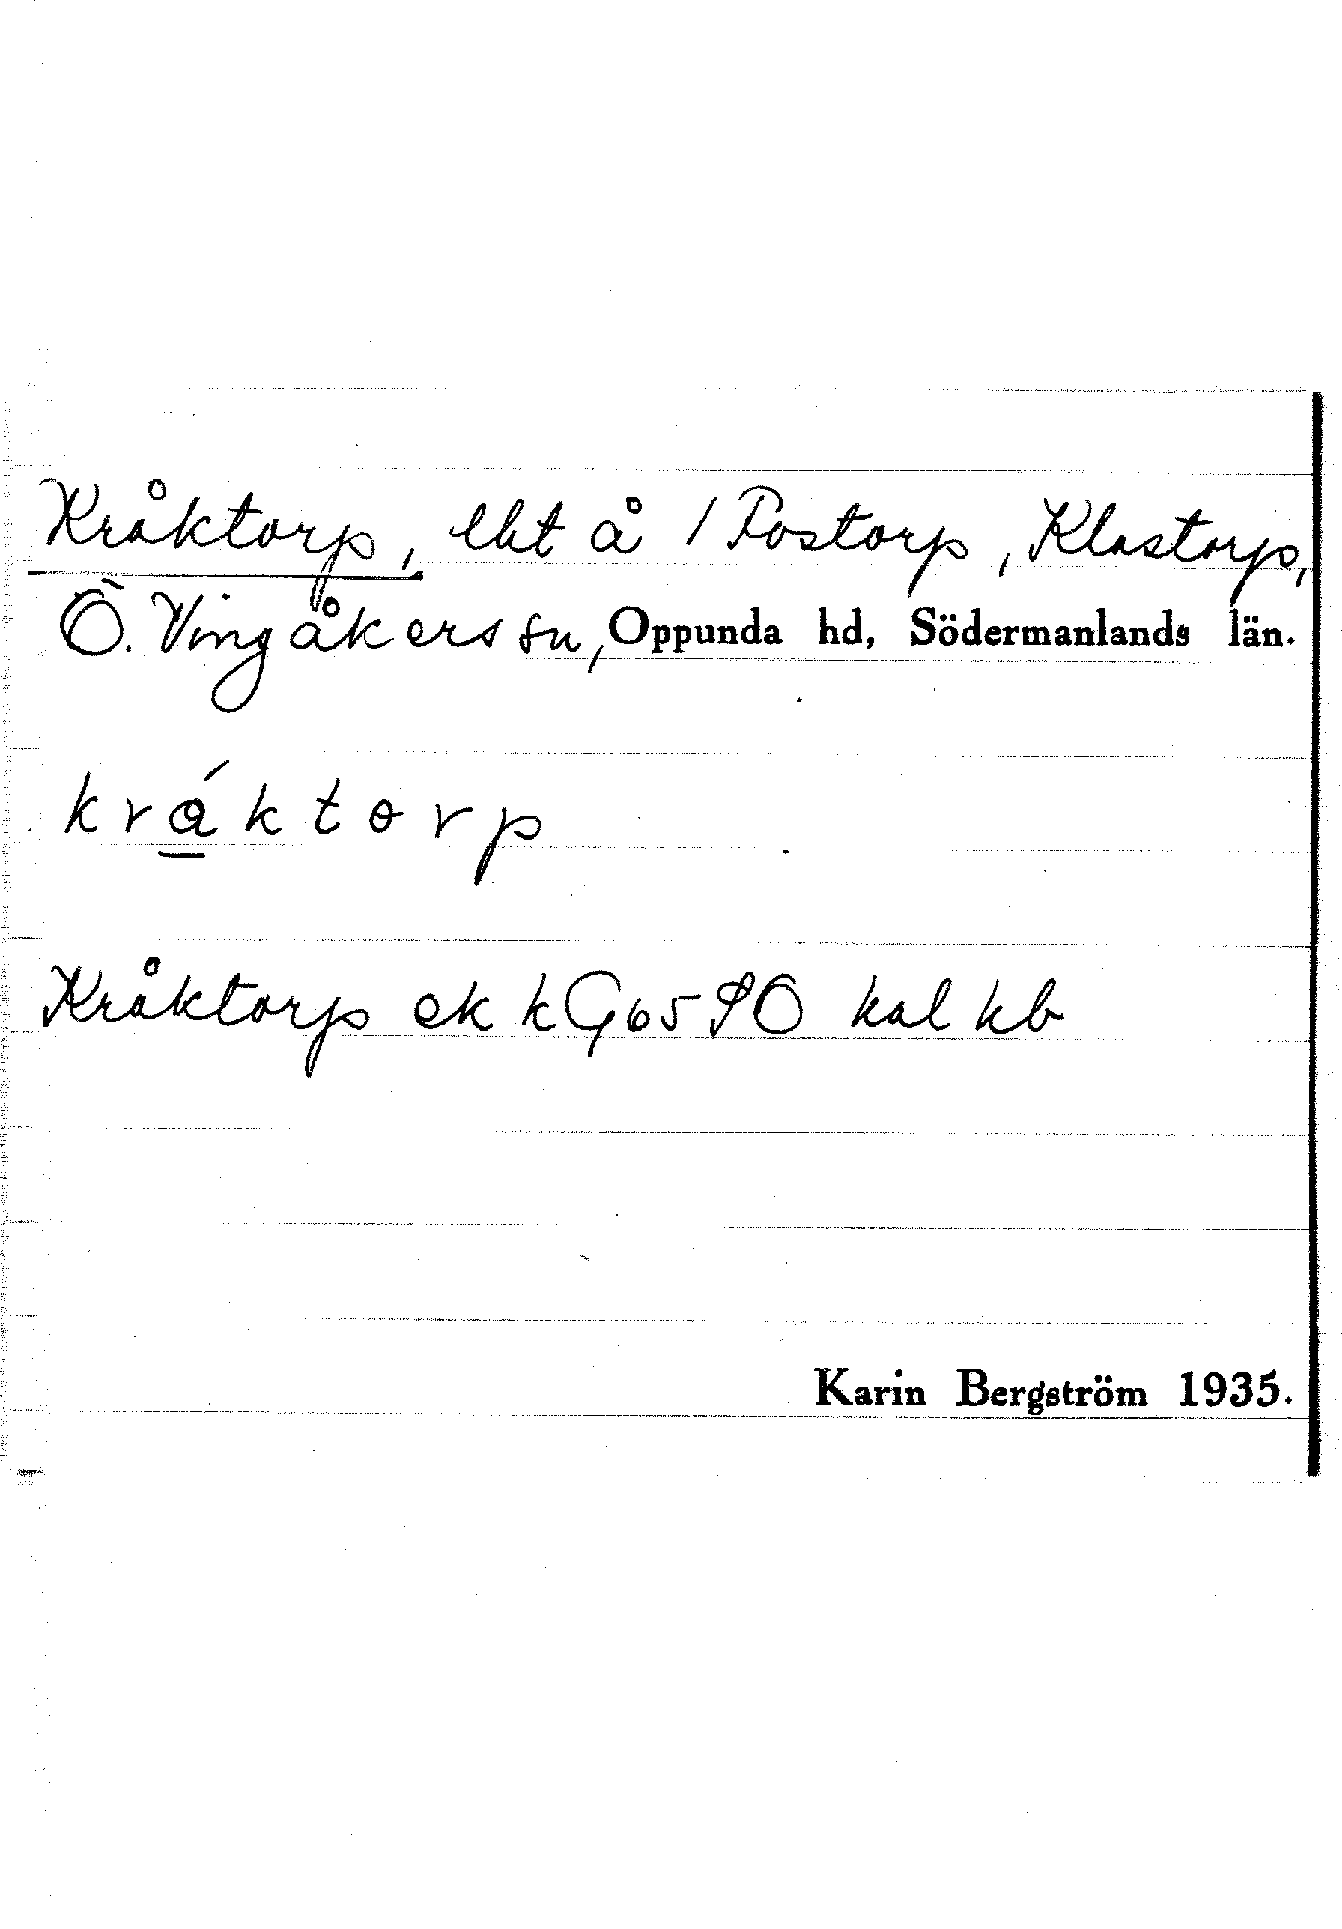 Kråktorp, lht å 1 Fostorp, Klastorp,
Ö. Vingåkers sn, Oppunda hd, Södermanlands län.
kráktorp
Kråktorp ek kG 65 SO kal kb
Karin Bergström 1935.